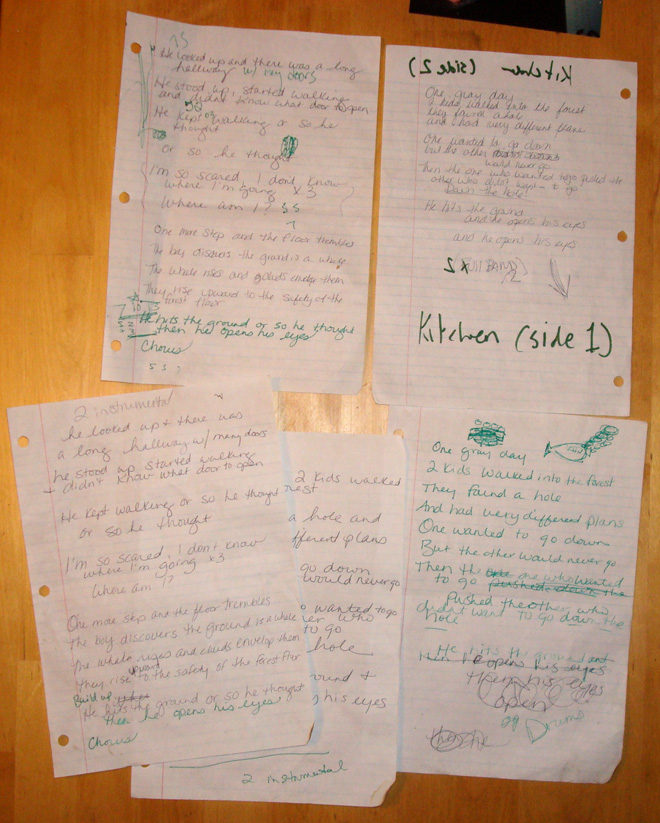 He looked up and there was a long
hallway w/ many doors
He stood up, started walking
and didn't know what door to open
He kept walking or so he
thought
or so he thought
I'm so scared, I don't know
where I'm going x3
Where am I?
One more step and the floor trembles
The boy discovers the ground is a whale
The whale rises and clouds envelop them
They rise upward to the safety of the
forest floor
He hits the ground or so he thought
then he opens his eyes
Chorus
Kitchen (side 2)
One gray day
2 kids walked into the forest
they found a hole
and had very different plans
One wanted to go down
but the other
would never go
Then the one who wanted to go pushed the
other who didn't want to go
Down the hole!
He hits the ground
and he opens his eyes
and he opens his eyes
x 2
Kitchen (side 1)
2 instrumental
he looked up & there was
a long hallway w/ many doors
he stood up started walking
+ didn't know what door to open
He kept walking or so he thought
or so he thought
I'm so scared, I don't know
where I'm going x3
Where am I?
One more step and the floor trembles
The boy discovers the ground is a whale
The whale rises and clouds envelop them
They rise upward to the safety of the forest floor
Build up
He hits the ground or so he thought
then he opens his eyes
Chorus
2 kids walked
a hole and
fferent plans
go down
would never go
wanted to go
who
to go
hole
ound &
his eyes
2 instrumental
One gray day
2 Kids walked into the forest
They found a hole
And had very different plans
One wanted to go down
But the other would never go
Then the one who wanted
to go pushed down the
Pushed the other who
didn't want to go down the
hole
He hits the ground and
then he opens his eyes
then his eyes
open
Drums